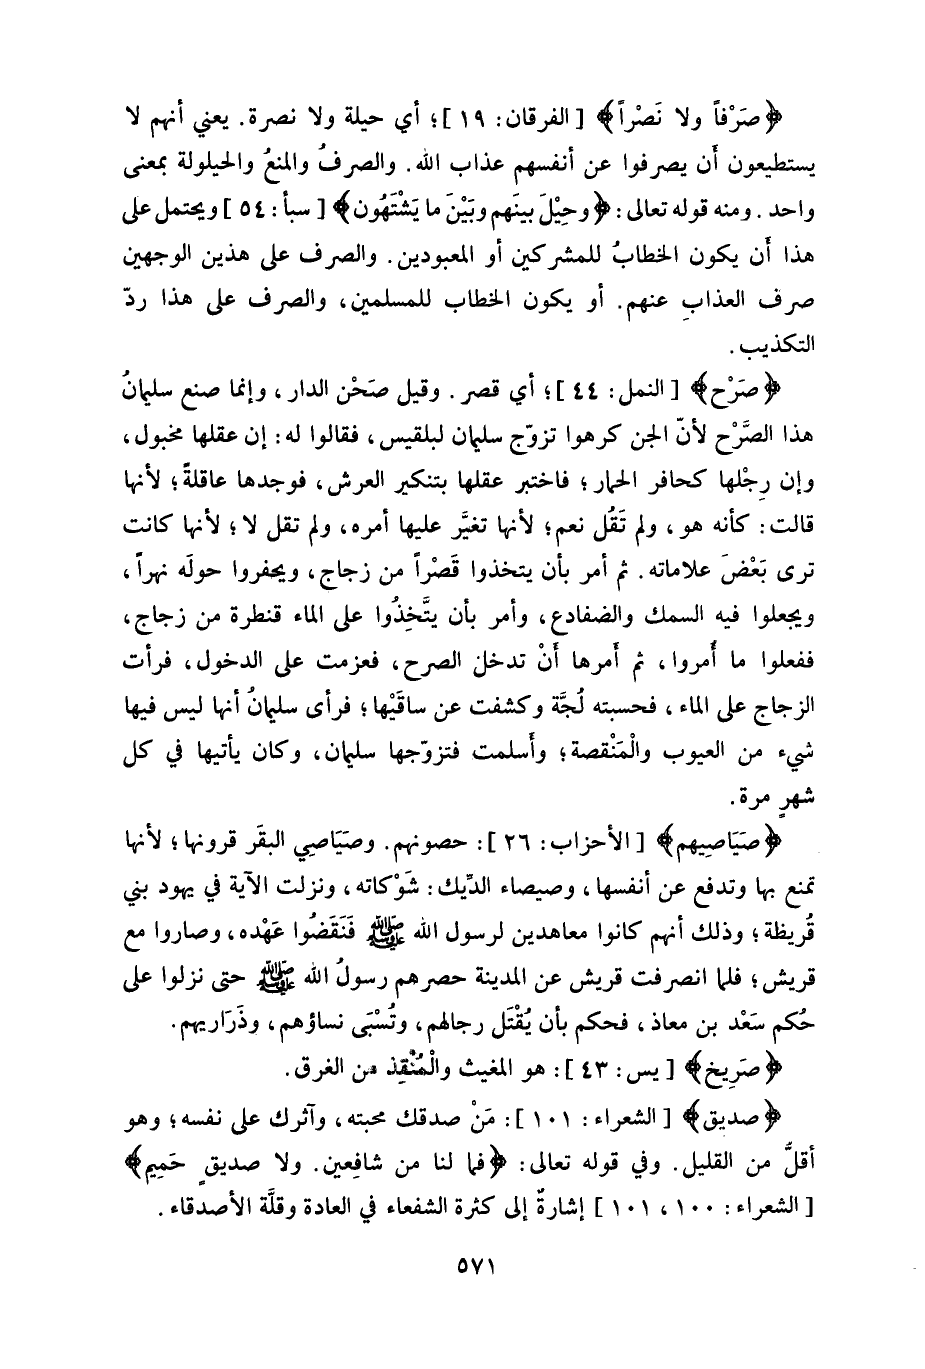 ﴿صَرْفاً ولا نَصْراً﴾ [ الفرقان : ١٩ ] ؛ أي حيلة ولا نصرة . يعني أنهم لا
يستطيعون أَن يصرفوا عن أنفسهم عذاب الله . والصرفُ والمنعُ والحيلولة بمعنى
واحد . ومنه قوله تعالى : ﴿وحِيْلَ بينَهم وبَيْنَ ما يَشْتَهُون﴾ [ سبأ : ٥٤ ] ويحتمل على
هذا أَن يكون الخطابُ للمشركين أو المعبودين . والصرف على هذين الوجهين
صرف العذابِ عنهم . أو يكون الخطاب للمسلمين ، والصرف على هذا ردّ
التكذيب .
﴿صَرْح﴾ [ النمل : ٤٤ ] ؛ أي قصر . وقيل صَحْن الدار ، وإنما صنع سليمانُ
هذا الصَّرْح لأنّ الجن كرهوا تزوّج سليمان لبلقيس ، فقالوا له : إن عقلها مخبول ،
وإن رِجْلها كحافر الحمار ؛ فاختبر عقلها بتنكير العرش ، فوجدها عاقلةً ؛ لأنها
قالت : كأنه هو ، ولم تَقُل نعم ؛ لأنها تغيَّر عليها أمره ، ولم تقل لا ؛ لأنها كانت
ترى بَعْضَ علاماته . ثم أمر بأن يتخذوا قَصْراً من زجاج ، ويحفروا حولَه نهراً ،
ويجعلوا فيه السمك والضفادع ، وأمر بأن يتَّخِذُوا على الماء قنطرة من زجاج ،
ففعلوا ما أُمروا ، ثم أَمرها أَنْ تدخل الصرح ، فعزمت على الدخول ، فرأت
الزجاج على الماء ، فحسبته لُجَّة وكشفت عن ساقَيْها ؛ فرأى سليمانُ أنها ليس فيها
شيء من العيوب والْمَنْقصة ؛ وأَسلمت فتزوّجها سليمان ، وكان يأتيها في كل
شهرٍ مرة .
﴿صَيَاصِيهم﴾ [ الأحزاب : ٢٦ ] : حصونهم . وصَيَاصِي البقَر قرونها ؛ لأنها
تمنع بها وتدفع عن أنفسها ، وصيصاء الدِّيك : شَوْكاته ، ونزلت الآية في يهود بني
قُريظة ؛ وذلك أنهم كانوا معاهدين لرسول الله ﷺ فَنَقَضُوا عَهْده ، وصاروا مع
قريش ؛ فلما انصرفت قريش عن المدينة حصرهم رسولُ الله ﷺ حتى نزلوا على
حُكم سَعْد بن معاذ ، فحكم بأن يُقْتَل رجالهم ، وتُسْبَى نساؤهم ، وذَرَاريهم .
﴿صَرِيخ﴾ [ يس : ٤٣ ] : هو المغيث والْمُنْقِذ من الغرق .
﴿صديق﴾ [ الشعراء : ١٠١ ] : مَنْ صدقك محبته ، وآثرك على نفسه ؛ وهو
أقلَّ من القليل . وفي قوله تعالى : ﴿فما لنا من شافِعين . ولا صديقٍ حَمِيم﴾
[ الشعراء : ١٠٠ ، ١٠١ ] إشارةٌ إلى كثرة الشفعاء في العادة وقلَّة الأصدقاء .
٥٧١